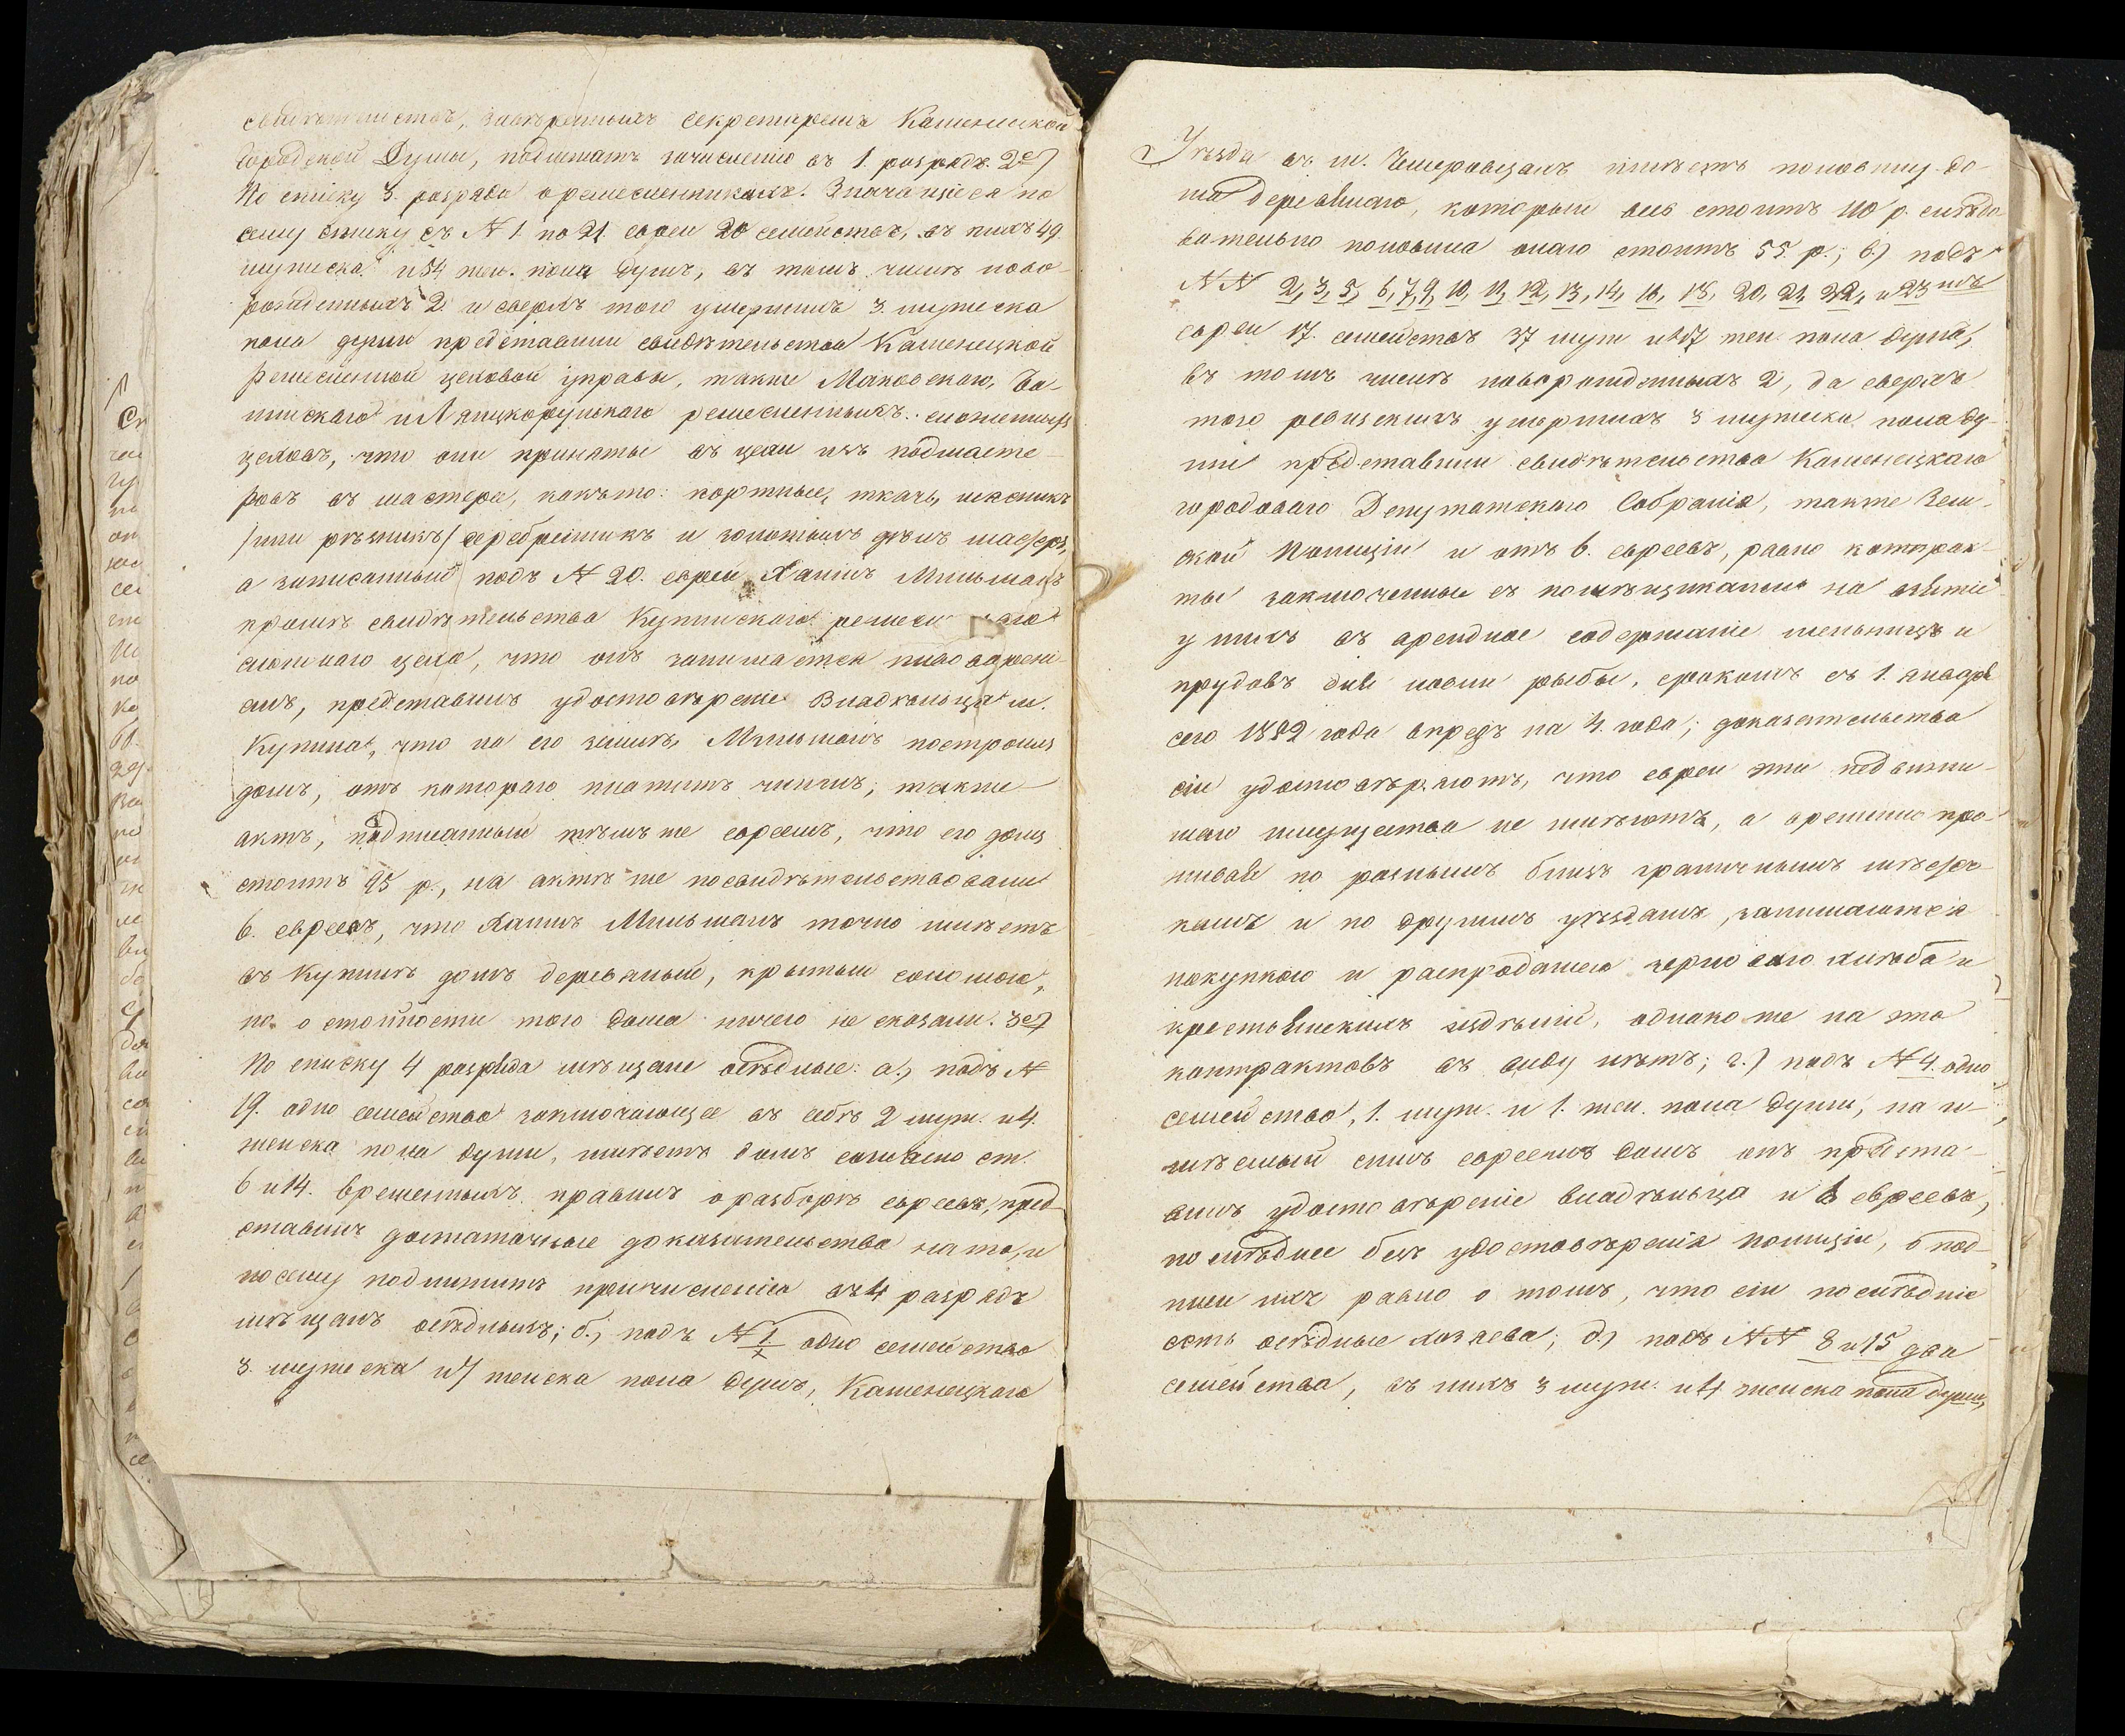 свидѣтельствъ, завѣренныхъ секретаремъ Каменецкой
Городской Думы, подлежатъ зачисленію въ 1. разрядъ. 2е)
По списку 3. разряда о ремесленникахъ. Значащіеся по
сему списку съ № 1. по 21. евреи 20 семействъ, въ нихъ 49.
мужеска и 54 жен. пола душъ, въ томъ числѣ ново-
рожденныхъ 2. и сверхъ того умершихъ 3. мужеска
пола души представили свидѣтельства Каменецкой
Ремесленной цеховой управы, также Маковскаго,
и Лянцкорунскаго ремесленныхъ сложенныхъ
цеховъ, что они приняты въ цехи изъ подмасте-
ровъ въ мастера, какъ то: портные, ткачъ, мясникъ
/или рѣзникъ/ серебренникъ и золотыхъ дѣлъ мастеръ,
а записанный подъ № 20. еврей Хаимъ Мильманъ
кромѣ свидѣтельства Купинскаго ремесленнаго
сложнаго цеха, что онъ занимается пивоварені-
емъ, представилъ удостовѣреніе Владѣльца м.
Купина, что на его землѣ, Мильманъ построилъ
домъ, отъ котораго платитъ чиншъ; также
актъ, подписанный тѣмъ же евреемъ, что его домъ
стоитъ 95 р., на актѣ же посвидѣтельствовали
6. евреевъ, что Хаимъ Мильманъ точно имѣетъ
въ Купинѣ домъ деревяный, крытый соломою,
но о стоимости того дома ничего не сказали. 3е)
По списку 4 разряда мѣщане осѣдлые: а.) подъ №
19. одно семейство заключающее въ себѣ 2 муж. и 4.
женска пола души, имѣетъ домъ согласно ст.
6 и 14. временныхъ правилъ о разборѣ евреевъ, пред-
ставилъ достаточные доказательства на то, и
по сему подлежитъ причисленію въ 4 разрядъ
мѣщанъ осѣдлыхъ; б.) подъ № 1 одно семейство
3. мужеска и 7 женска пола душъ, Каменецкаго
Уѣзда въ м. Чемеровцахъ имѣетъ половину до-
ма деревянаго, который весь стоитъ 110 р. слѣдо-
вательно половина онаго стоитъ 55. р.; в.) подъ
№№ 2, 3, 5, 6, 7, 9, 10, 11, 12, 13, 14, 16, 18, 20, 21, 22, и 23 мъ
евреи 17. семействъ 37 муж и 47 жен. пола душъ,
въ томъ числѣ новорожденныхъ 2, да сверхъ
того ревизскихъ умершихъ 3 мужеска пола ду-
ши представили свидѣтельства Каменецкаго
городоваго Депутатскаго Собранія, также Зем-
ской Полиціи и отъ 6. евреевъ, равно контрак-
ты заключенные съ помѣщиками на взятіе
у нихъ въ арендное содержаніе мельницъ и
прудовъ для ловли рыбы, срокомъ съ 1. января
сего 1852 года впредь на 4. года; доказательства
сіи удостовѣряютъ, что евреи эти недвижи-
маго имущества не имѣютъ, а временно про-
живая по разнымъ близъ граничнымъ мѣстеч-
камъ и по другимъ уѣздамъ, занимаются
покупкою и распродажею зерноваго хлѣба и
крестьянскихъ издѣлій, однако же на это
контрактовъ въ виду нѣтъ; г.) подъ № 4. одно
семейство, 1. муж. и 1. жен. пола души, на и-
мѣемый симъ евреемъ домъ онъ предста-
вилъ удостовѣреніе владѣльца и 6 евреевъ,
послѣднее безъ удостовѣренія полиціи, о под-
писи ихъ равно о томъ, что сіи послѣдніе
есть осѣдлые хозяева; д.) подъ №№ 8 и 15 два
семейства, въ нихъ 3 муж. и 4 женска пола души,